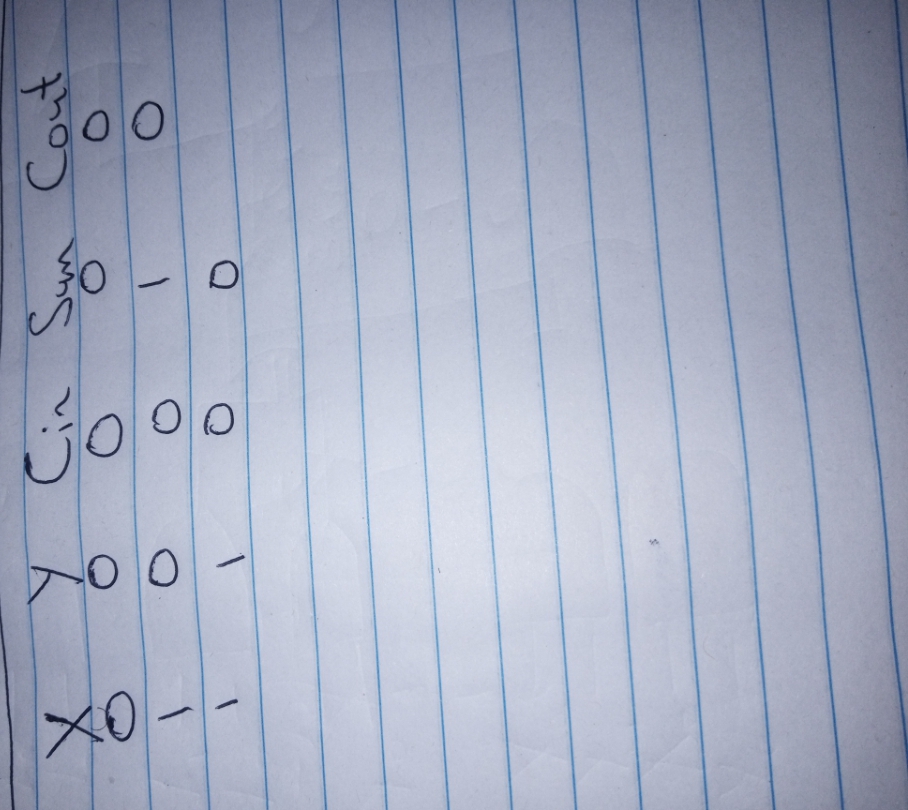 X Y Cin Sum Cout
0 0 0 0 0
1 0 0 1 0
1 1 0 0